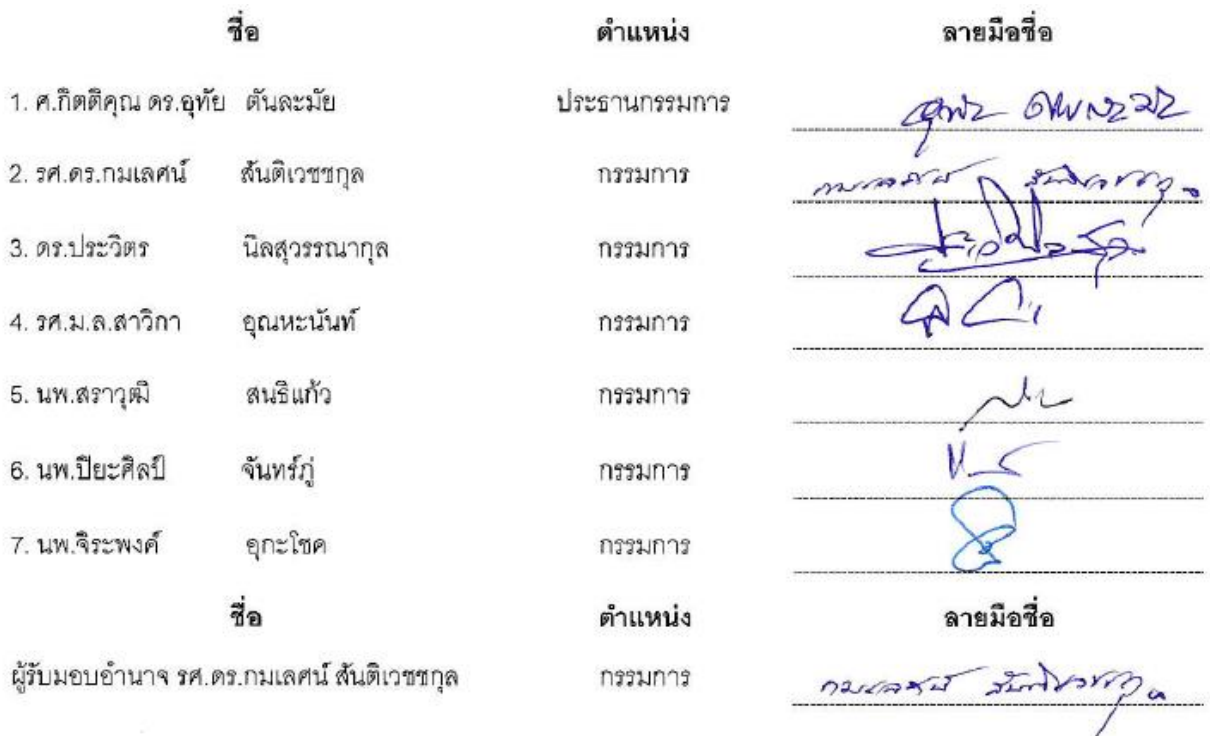 ชื่อ ตำแหน่ง ลายมือชื่อ
1. ศ.กิตติคุณ ดร.อุทัย ตันละมัย ประธานกรรมการ อุทัย ตันละมัย
2. รศ.ดร.กมเลศน์ สันติเวชชกุล กรรมการ กมเลศน์ สันติเวชชกุล
3. ดร.ประวิตร นิลสุวรรณากุล กรรมการ
4. รศ.ม.ล.สาวิกา อุณหะนันท์ กรรมการ
5. นพ.สราวุฒิ สนธิแก้ว กรรมการ
6. นพ.ปิยะศิลป์ จันทร์ภู่ กรรมการ
7. นพ.จิระพงค์ อุกะโชค กรรมการ
ชื่อ ตำแหน่ง ลายมือชื่อ
ผู้รับมอบอำนาจ รศ.ดร.กมเลศน์ สันติเวชชกุล กรรมการ กมเลศน์ สันติเวชชกุล